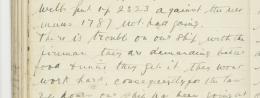 put up 2323 against the
1787 Not bad going.
There is trouble on our ship, with the
firemen they are demanding better
food & until they get it, they wont
work hard, consequently
our ship has been